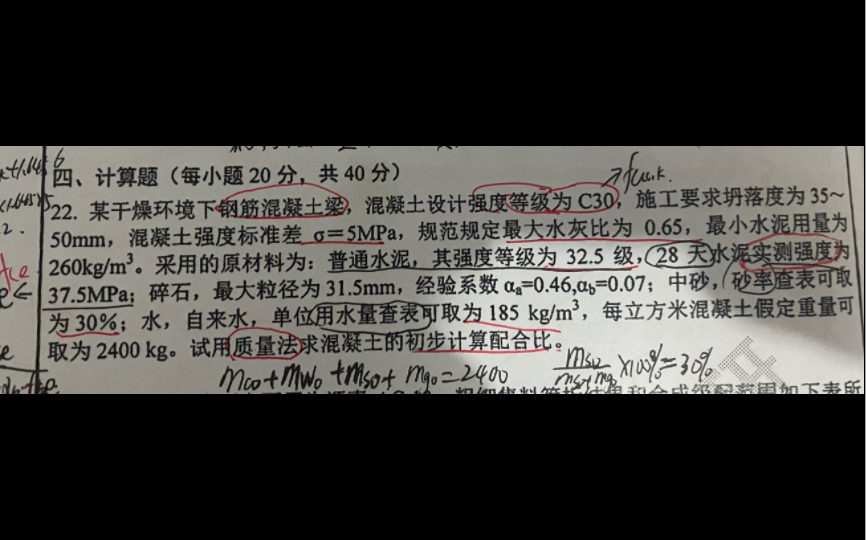 四、计算题（每小题 20 分，共 40 分）
fcu.k.
22. 某干燥环境下钢筋混凝土梁，混凝土设计强度等级为 C30，施工要求坍落度为 35~
50mm，混凝土强度标准差 σ＝5MPa，规范规定最大水灰比为 0.65，最小水泥用量为
260kg/m³。采用的原材料为：普通水泥，其强度等级为 32.5 级，28 天水泥实测强度为
37.5MPa；碎石，最大粒径为 31.5mm，经验系数 αa=0.46,αb=0.07；中砂，砂率查表可取
为 30%；水，自来水，单位用水量查表可取为 185 kg/m³，每立方米混凝土假定重量可
取为 2400 kg。试用质量法求混凝土的初步计算配合比。
mco+mwo+mso+mgo=2400
mso/mso+mgo×100%=30%